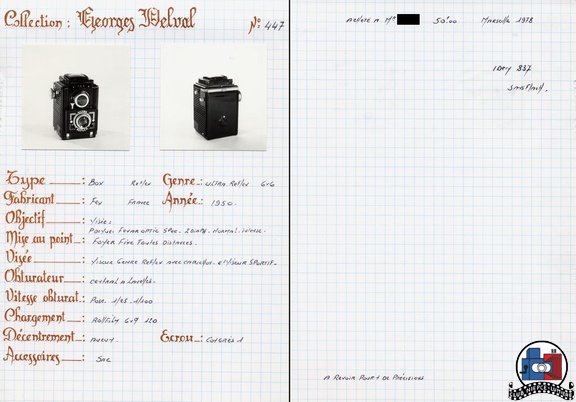 Collection : Georges Delval N° 447
Type : Box Reflex Genre : Ultra. Reflex 6x6
Fabricant : Fex France Année : 1950.
Objectif : Visée :
Mise au point : Foyer Fixe Toutes Distances.
Visée : Viseur Genre Reflex avec capuchon et viseur Sportif.
Obturateur : central à lamelles.
Vitesse obturat. : Pose 1/25 1/100
Chargement : Rollfilm 120
Décentrement : aucun. Ecrou : Congrès 1
Accessoires : Sac
Acheté à Mr 50.00 Marseille 1978
A Revoir Pour + de Précisions